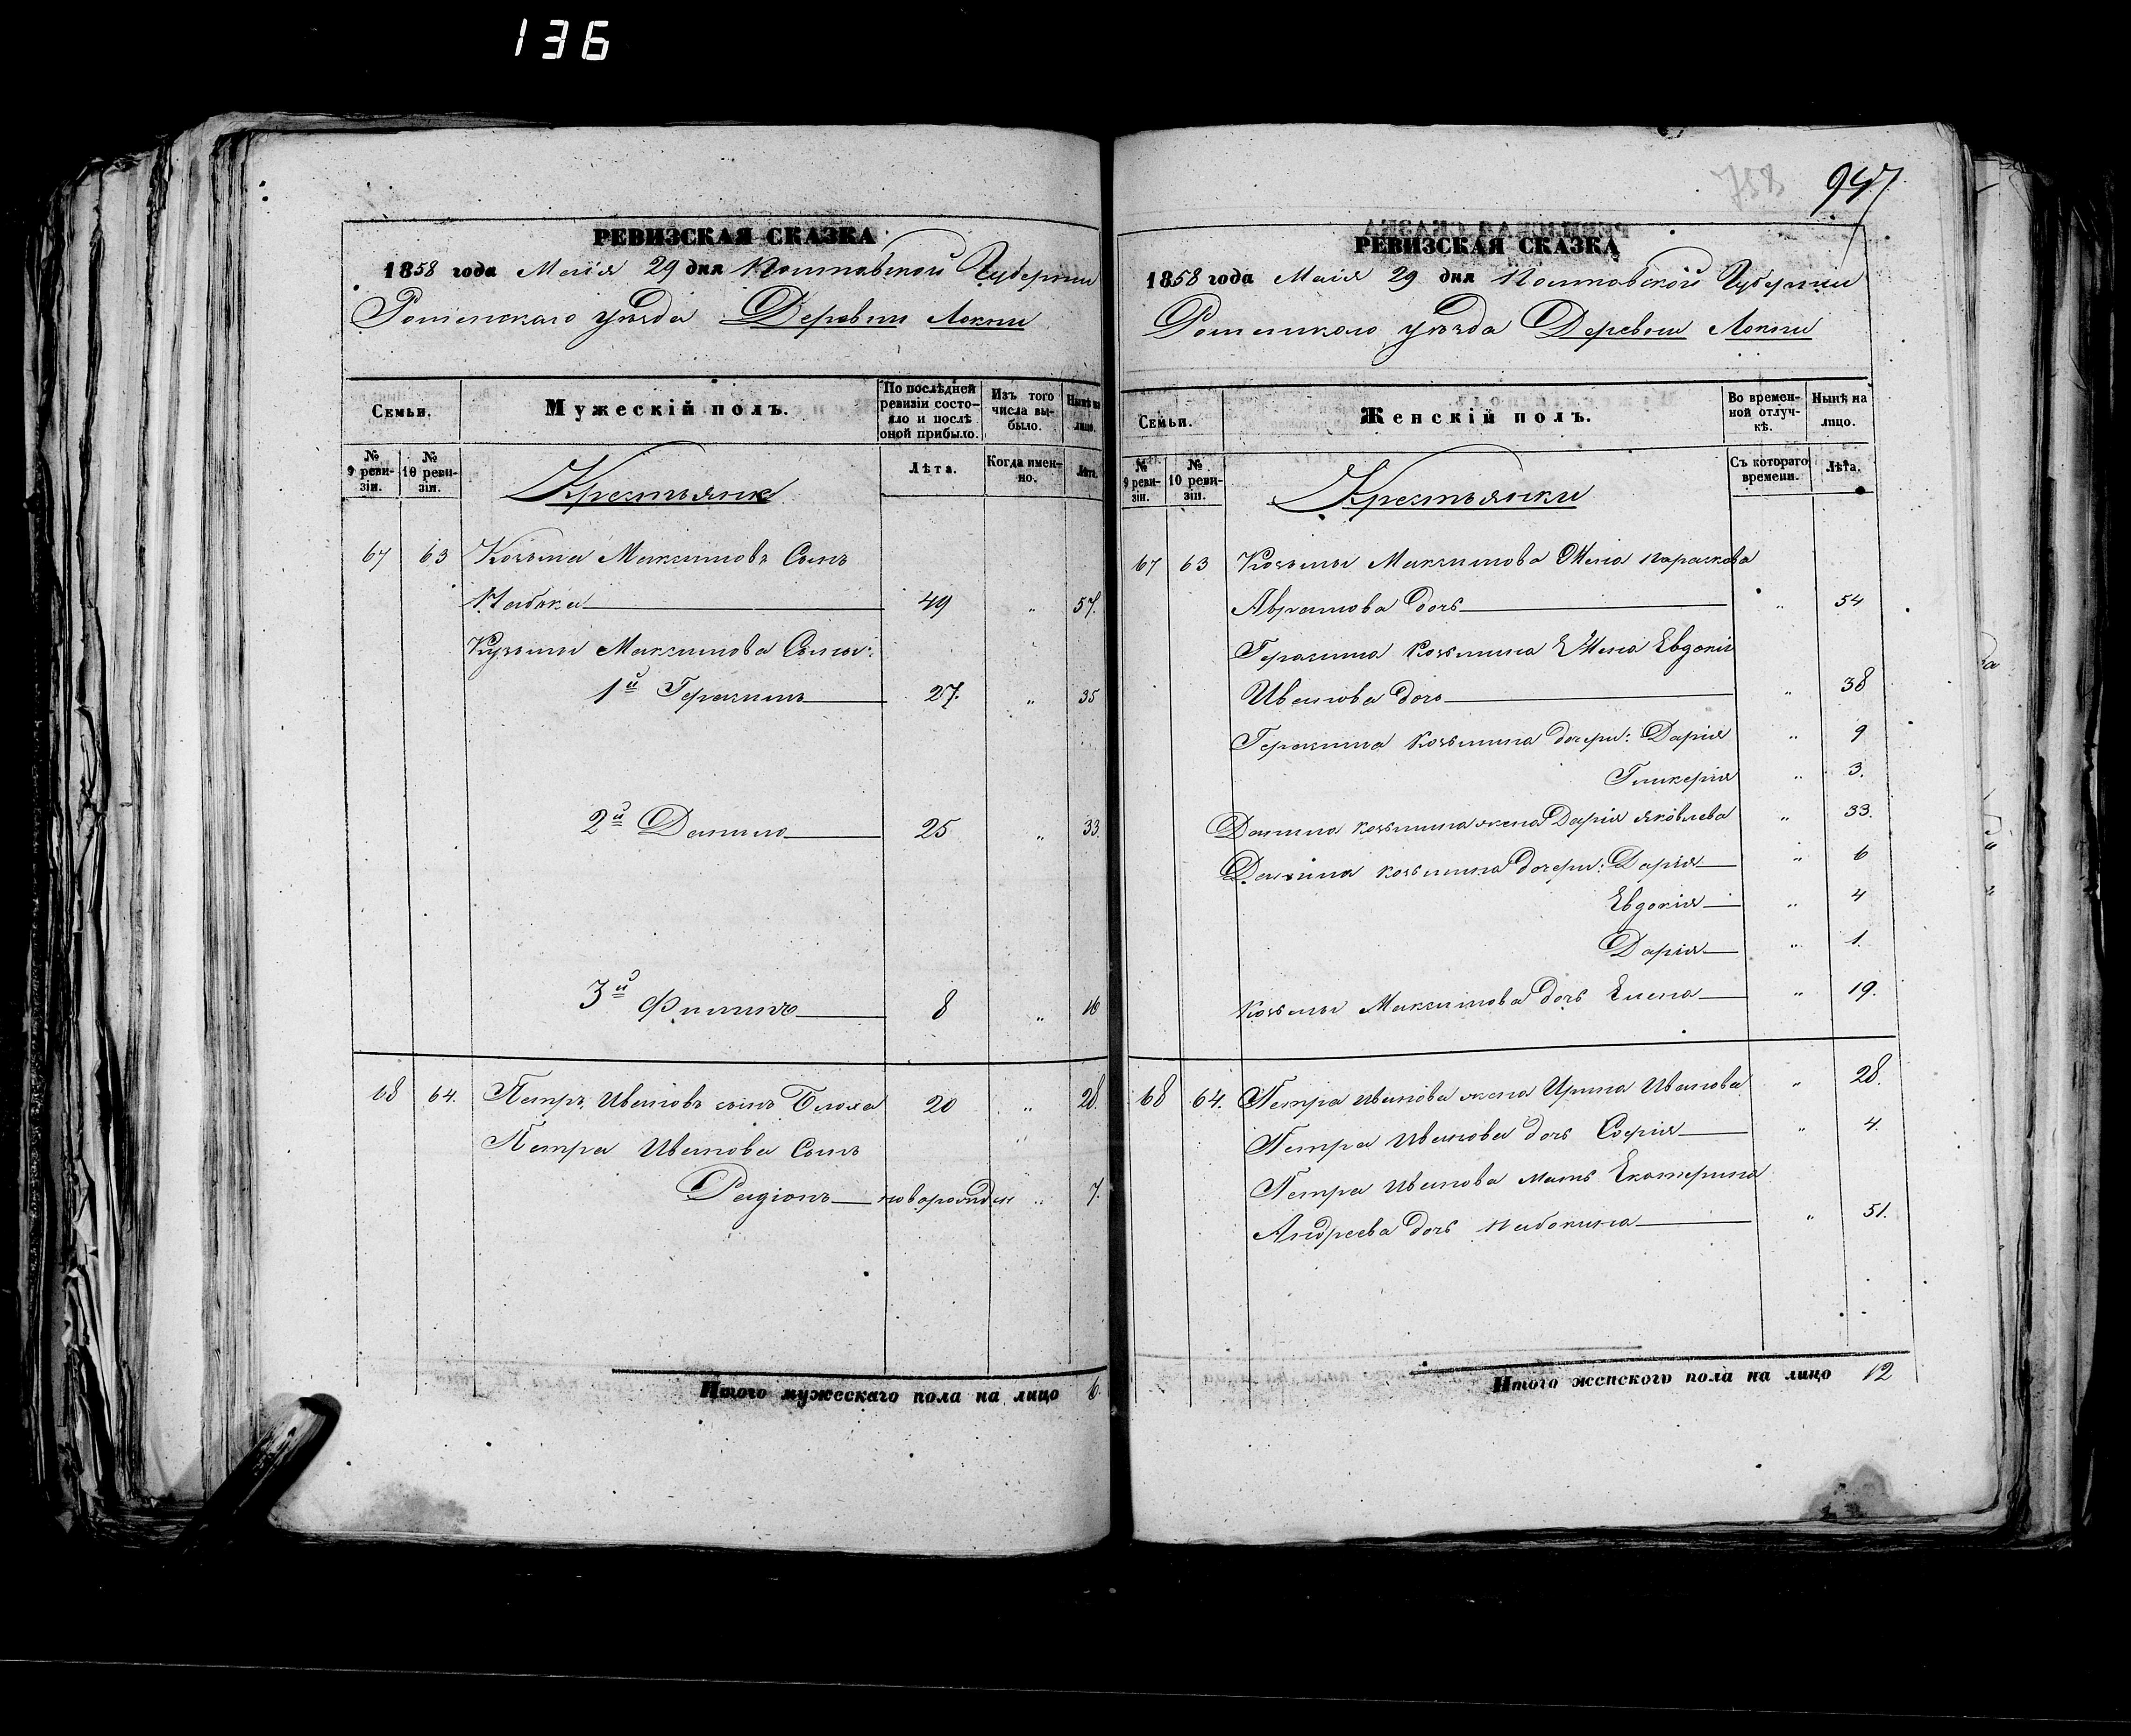 136
РЕВИЗСКАЯ СКАЗКА
1858 года Маія 29 дня Полтавской Губерніи
Роменскаго уѣзда Деревни Локни
Семьи.
Мужескій полъ.
По послѣдней ревизіи состояло и послѣ оной прибыло.
Изъ того числа выбыло.
Нынѣ на лицо.
№ 9 ревизіи.
№ 10 ревизіи.
Крестьяне
Лѣта.
Когда именно.
Лѣта.
67 63 Козьма Максимовъ Сынъ
49 „ 57.
Кузьмы Максимова Сыны:
1й Герасимъ 27. „ 35
2й Данило 25 „ 33.
3й Филипъ 8 „ 16
68 64. Петръ Ивановъ сынъ Блоха 20 „ 28.
Петра Иванова Сынъ
Радіонъ новорожден „ 7.
Итого мужескаго пола на лицо 6.
758
947
РЕВИЗСКАЯ СКАЗКА
1858 года Маія 29 дня Полтавской Губерніи
Роменскаго уѣзда Деревни Локни
Семьи.
Женскій полъ.
Во временной отлучкѣ.
Нынѣ на лицо.
№ 9 ревизіи.
№ 10 ревизіи.
Крестьянки
Съ котораго времени.
Лѣта.
67 63 Козьмы Максимова Жена Параскева
Аврамова дочь „ 54
Герасима Козьмина Жена Евдокія
Иванова дочь „ 38
Герасима Козьмина дочери: Дарія „ 9
Гликерія „ 3.
Данила Козьмина жена Дарія Яковлева „ 33.
Данила Козьмина дочери: Дарія „ 6
Евдокія „ 4
Дарія „ 1.
Козьмы Максимова дочь Елена „ 19.
68 64. Петра Иванова жена Ирина Иванова „ 28.
Петра Иванова дочь Софія „ 4.
Петра Иванова мать Екатерина
Андреева дочь „ 51.
Итого женского пола на лицо 12